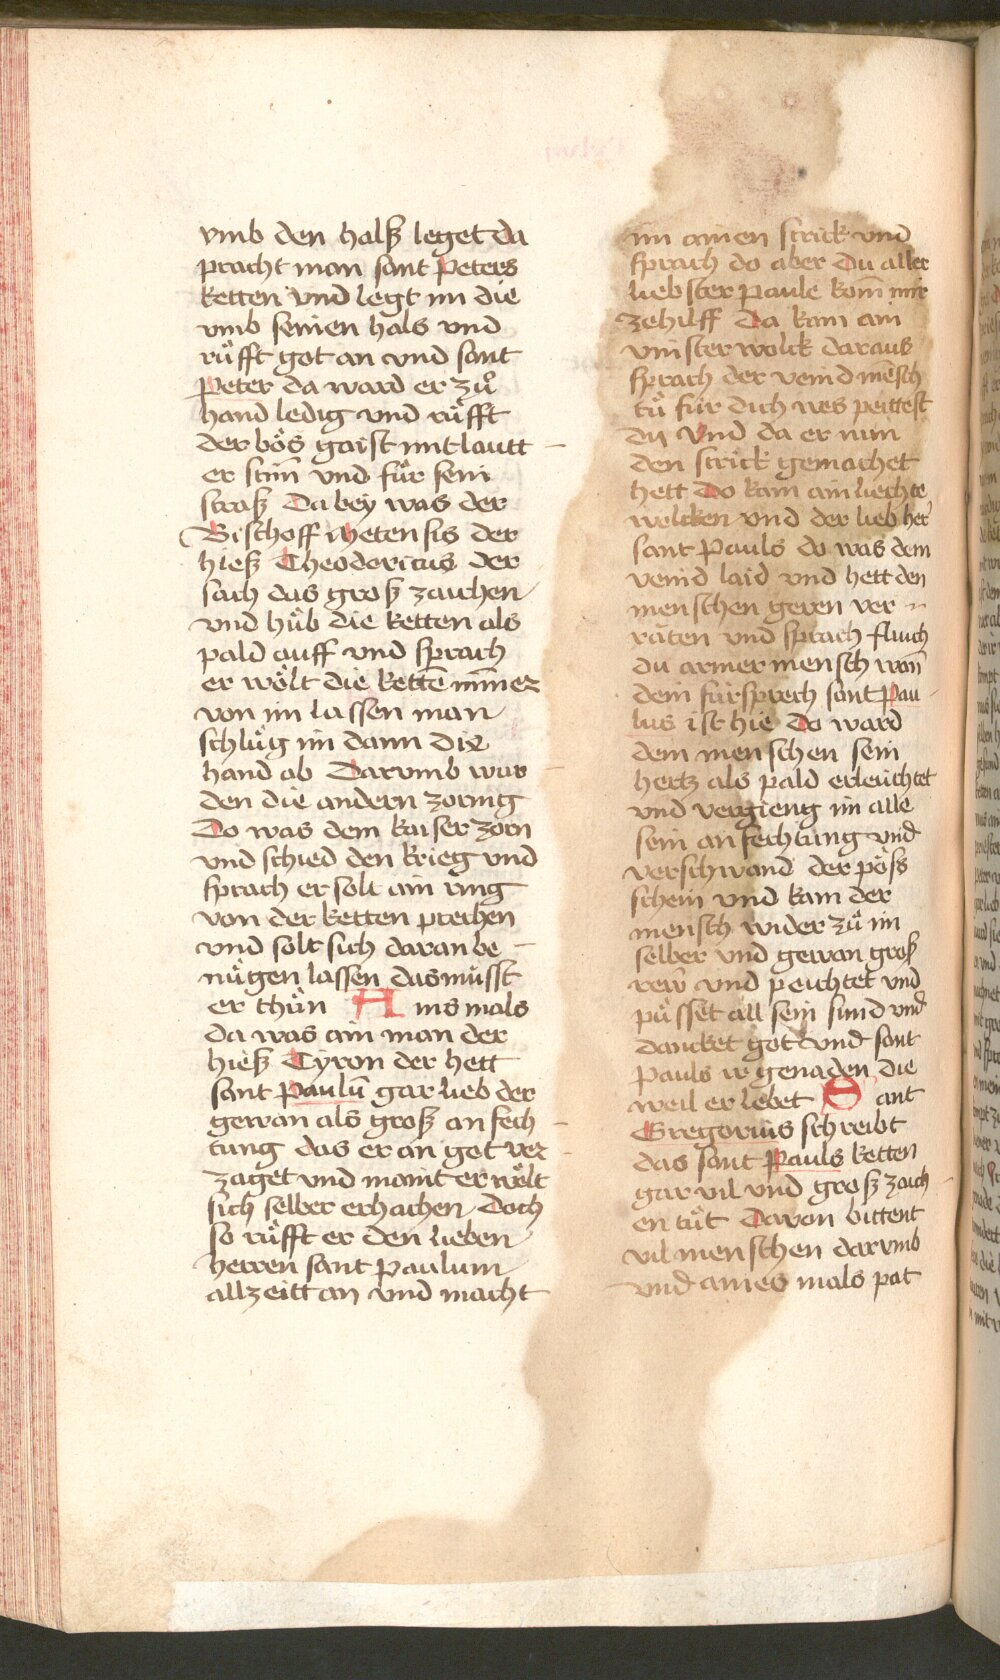 vmb den halß leget da
pracht man sant Peters
ketten vnd legt im die
vmb seinen hals vnd
rüfft got an vnd sant
Peter da ward er zuͦ
hand ledig vnd rüfft
der bös gaist mit lautt
er stim̄ vnd für sein
straß Da bey was der
Bischoff Metensis der
hieß Theodoricus der
sach das groß zaichen
vnd hüb die ketten als
pald auff vnd sprach
er wölt die kettē nim̄er
von im lassen man
schlüg im dann die
hand ab Darumb wur
den die andern zornig
Do was dem kaiser zorn
vnd schied den krieg vnd
sprach er solt ain ring
von der ketten prechen
vnd solt sich daran be
nügen lassen das müsst
er thün Ains mals
da was ain man der
hieß Tyron der hett
sant Paulū gar lieb der
gewan als groß anfech
tung das er an got ver
zaget vnd maint er wölt
sich selber erhachen Doch
so rüfft er den lieben
herren sant Paulum
allzeitt an vnd macht
im ainen strick vnd
sprach do aber Du aller
liebster Paule kom̄ mir
ze hilff Da kam ain
vinster wolck daraus
sprach der veind mēsch
tü für dich wes peittest
du Vnd da er nun
den strick gemachet
hett Do kam ain liechte
wolcken vnd der lieb her
sant Pauls do was dem
veind laid vnd hett den
menschen geren ver
räten vnd sprach fluich
du armer mensch wan̄
dem fürsprech sant Pau
lus ist hie Do ward
dem menschen sein
hertz als pald erleüchtet
vnd vergieng im alle
sein anfechtung vnd
verschwand der pöss
schein vnd kam der
mensch wider zü im
selber vnd gewan groß
rew vnd peichtet vnd
püsset all sein sünd vnd
dancket got vnd sant
Pauls ir genaden die
weil er lebet Sant
Gregorius schreibt
das sant Pauls ketten
gar vil vnd groß zaich
en tüt Davon bittent
vil menschen darvmb
vnd aines mals pat